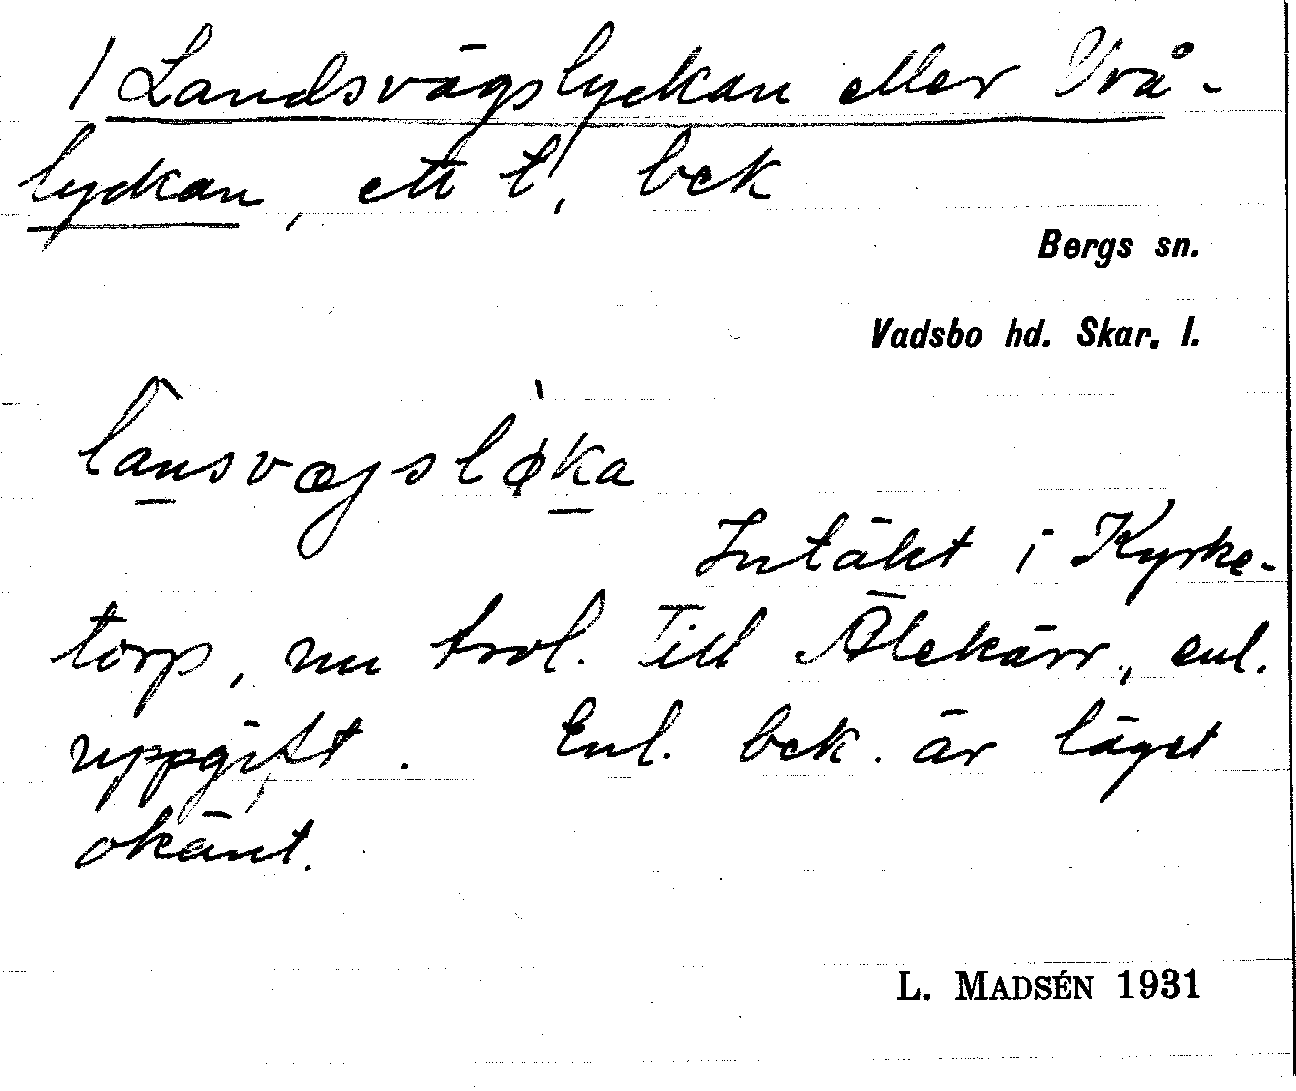 / Landsvägslyckan eller Två-
lyckan, ett t, bek
Bergs sn.
Vadsbo hd. Skar. l.
lansvægsløka
Intäkt i Kyrke-
torp, nu trol. till Älekärr, enl.
uppgift. Enl. bek. är läget
okänt.
L. MADSÉN 1931